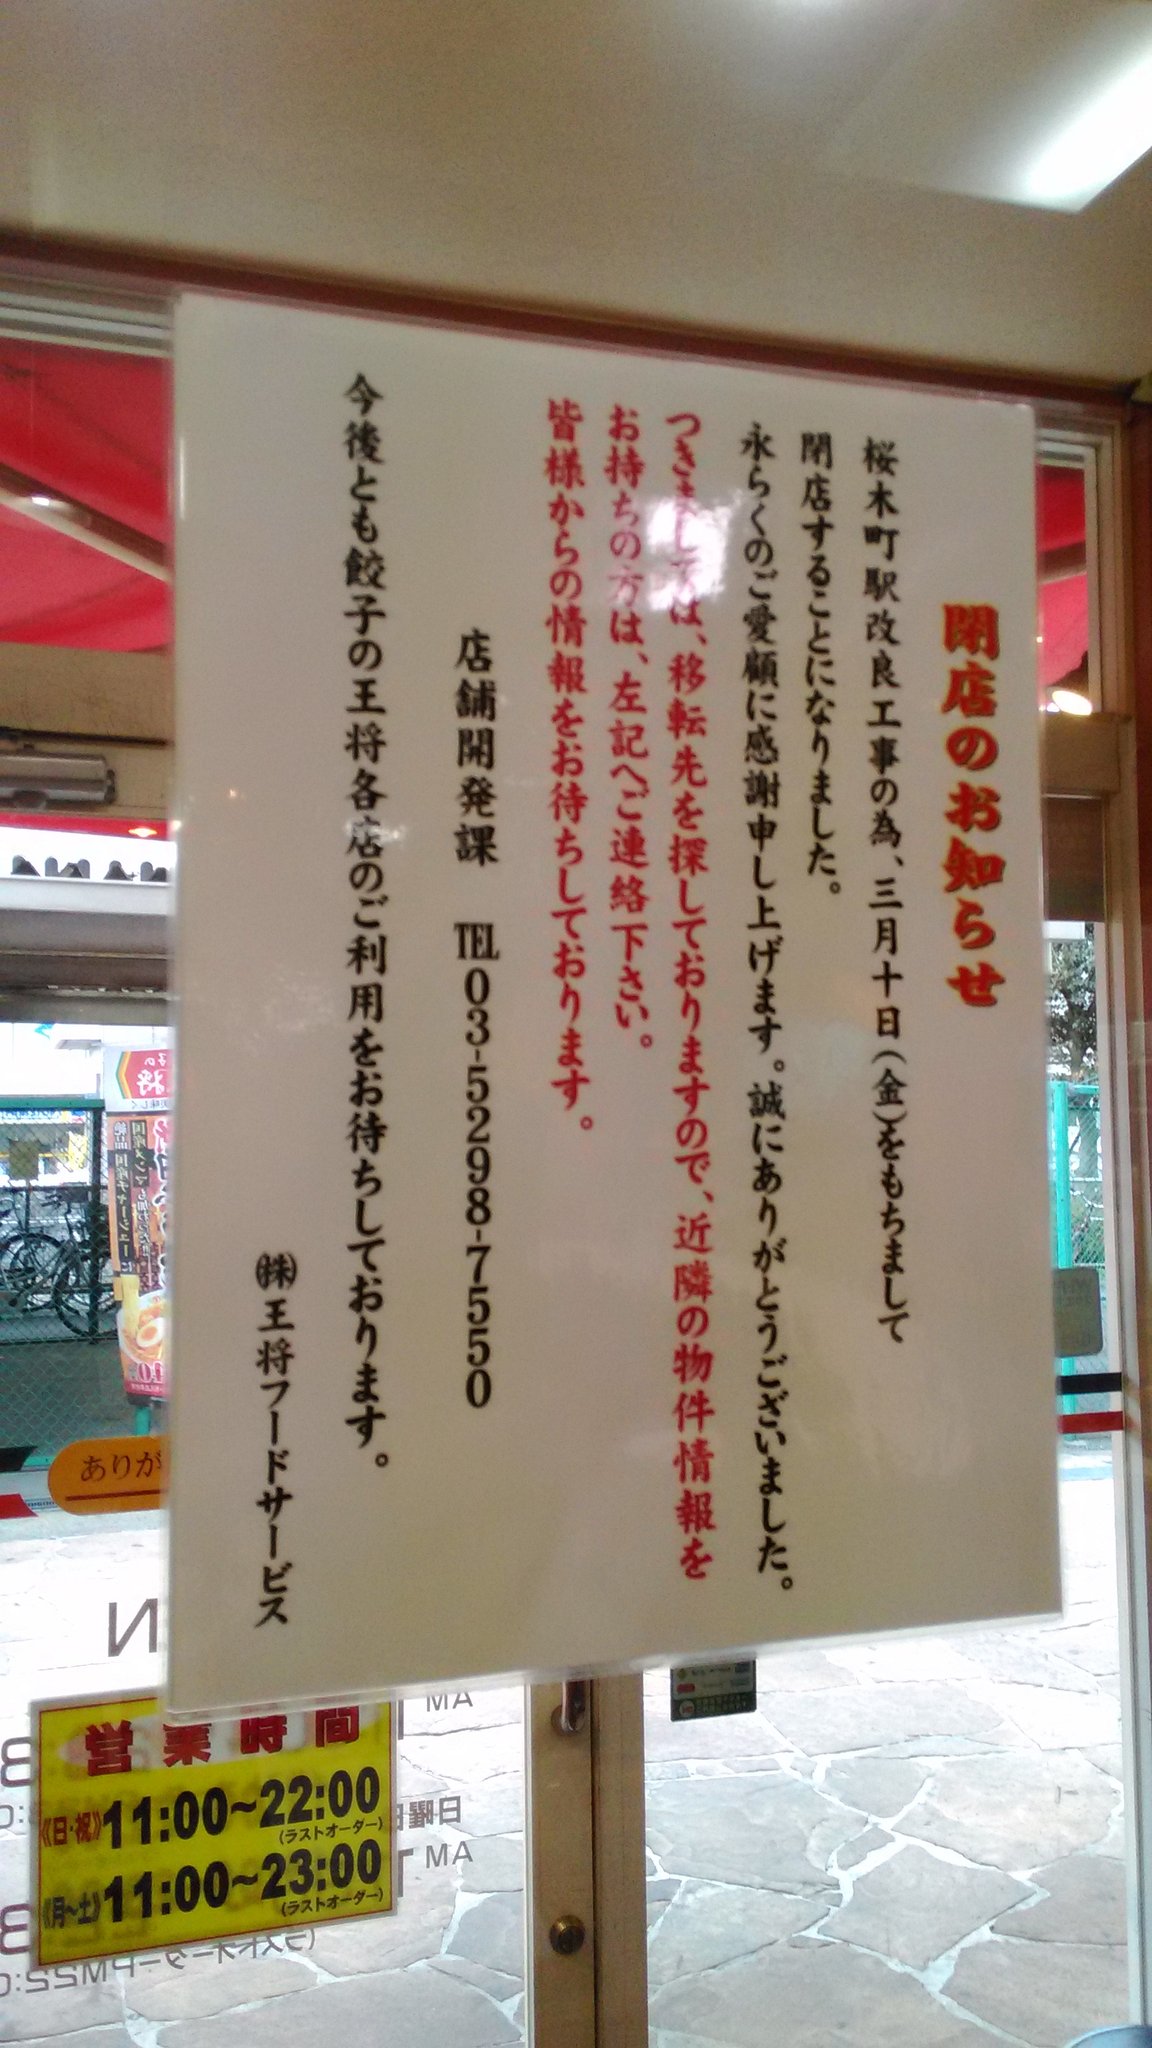 閉店のお知らせ
桜木町駅改良工事の為、三月十日(金)をもちまして
閉店することになりました。
永らくのご愛顧に感謝申し上げます。誠にありがとうございました。
つきましては、移転先を探しておりますので、近隣の物件情報を
お持ちの方は、左記へご連絡下さい。
皆様からの情報をお待ちしております。
店舗開発課 TEL 03-5298-7550
今後とも餃子の王将各店のご利用をお待ちしております。
㈱王将フードサービス
ありが
営業時間
《日・祝》11:00~22:00
(ラストオーダー)
《月~土》11:00~23:00
(ラストオーダー)
AM
日曜
AM
(ラストオーダーPM22: